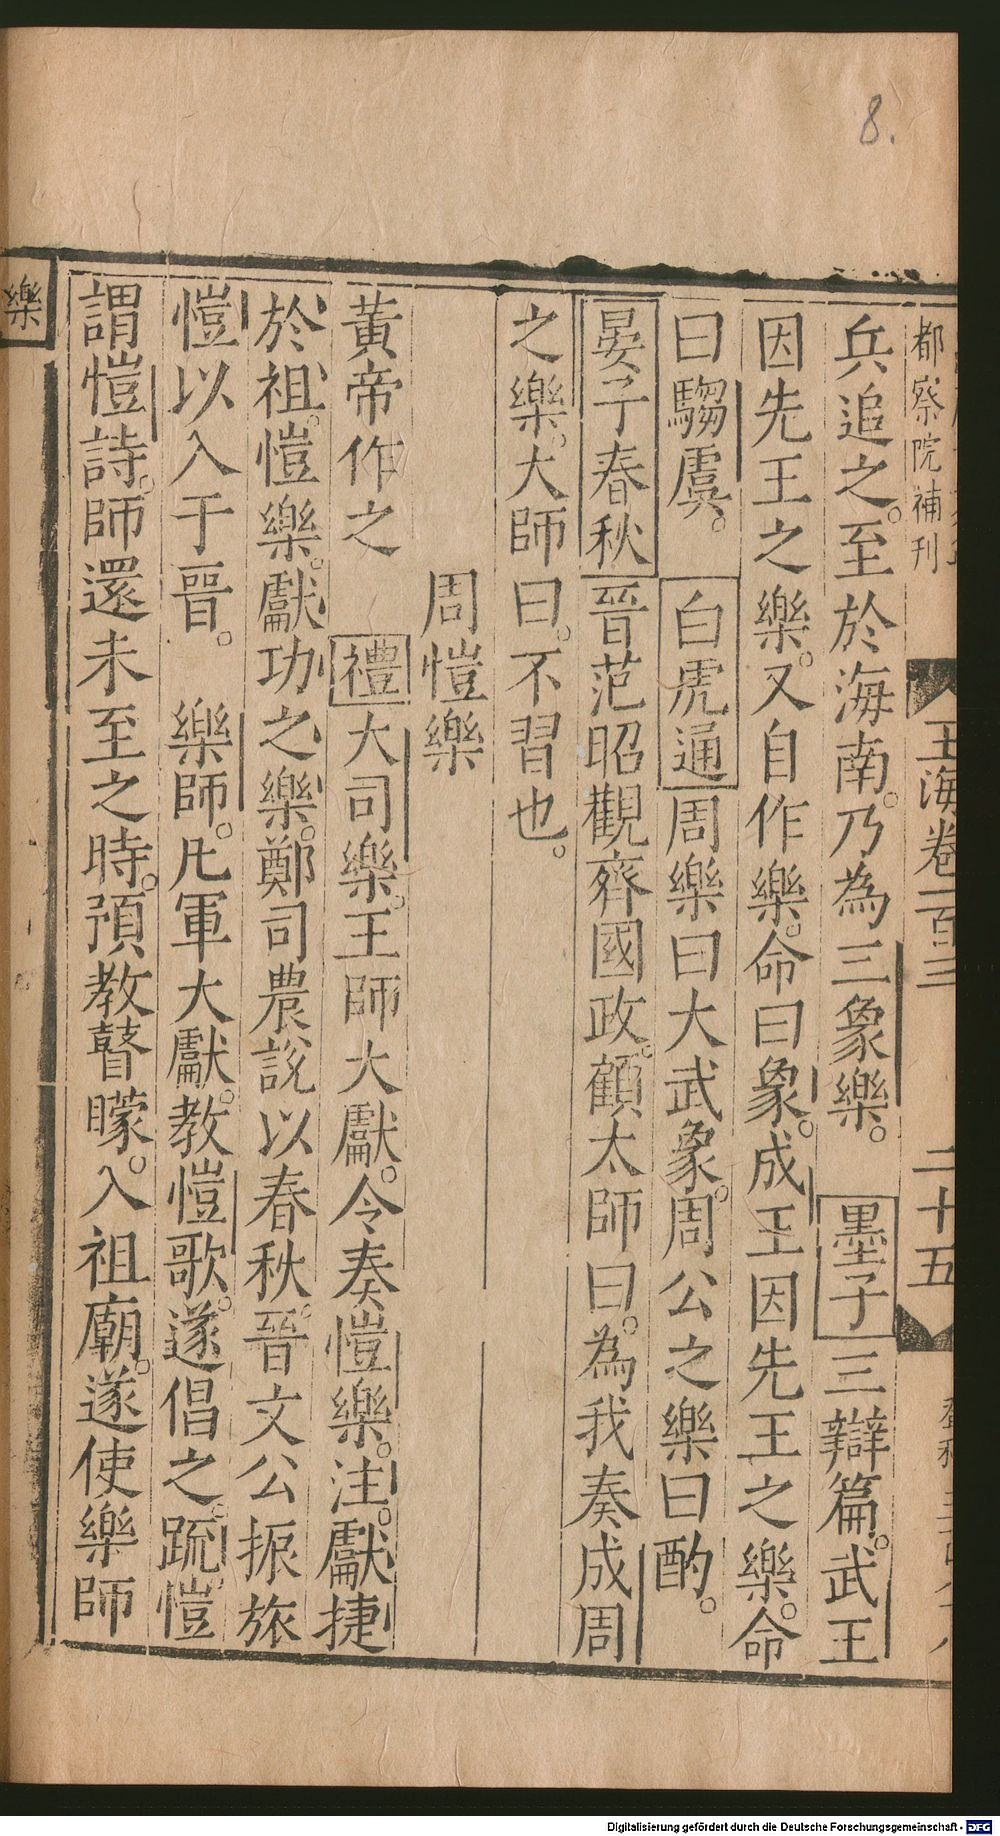 8.
都察院補刊
玉海卷一百三
二十五
兵追之。至於海南。乃為三象樂。 墨子三辯篇。武王
因先王之樂。又自作樂。命曰象。成王因先王之樂。命
曰騶虞。 白虎通周樂曰大武象。周公之樂曰酌。
晏子春秋晉范昭觀齊國政。顧太師曰。為我奏成周
之樂。大師曰。不習也。
周愷樂
黃帝作之 禮大司樂。王師大獻。令奏愷樂。注。獻捷
於祖。愷樂。獻功之樂。鄭司農說以春秋。晉文公振旅
愷以入于晉。 樂師。凡軍大獻。教愷歌。遂倡之。䟽。愷
謂愷詩。師還未至之時。預教瞽矇。入祖廟。遂使樂師
樂
Digitalisierung gefördert durch die Deutsche Forschungsgemeinschaft - DFG